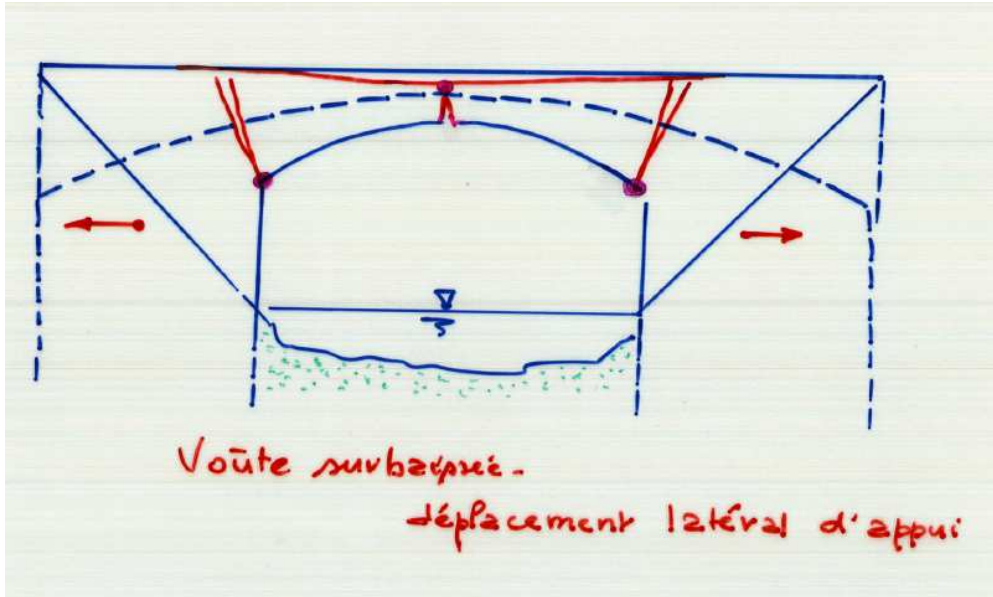 Voûte surbaissée.
déplacement latéral d'appui